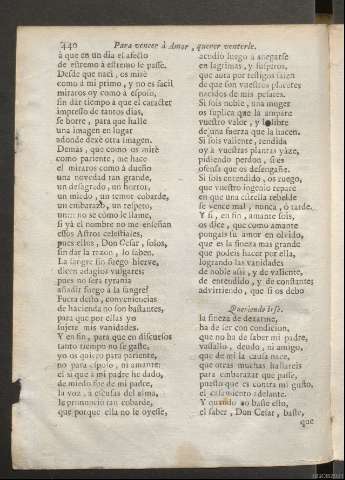 440 Para vencer à Amor, querer vencerle.
à que en un dia el afecto
de estremo à estremo se passe.
Desde que naci, os mirè
como à mi primo, y no es facil
miraros oy como à esposo,
sin dàr tiempo à que el caracter
impresso de tantos dias,
se borre, para que halle
una imagen en lugar
adonde dexè otra imagen.
Demàs, que como os mirè
como pariente, me hace
el miraros como à dueño
una novedad tan grande,
un desagrado, un horror,
un miedo, un temor cobarde,
un embarazo, un respeto,
un no se còmo le llame,
si yà el nombre no me enseñan
essos Astros celestiales,
pues ellos, Don Cesar, solos,
sin dàr la razon, lo saben.
La sangre sin fuego hierve,
dicen adagios vulgares;
pues no serà tyrania
añadir fuego à la sangre?
Fuera desto, conveniencias
de hacienda no son bastantes,
para que por ellas yo
sujete mis vanidades.
Y en fin, para que en discursos
tanto tiempo no se gaste,
yo os quiero para pariente,
no para esposo, ni amante:
el sì que à mi padre he dado,
de miedo fue de mi padre,
la voz, à escusas del alma,
le pronunciò tan cobarde,
que porque ella no le oyesse,
acudiò luego à anegarse
en lagrimas, y suspiros,
que aora por testigos salen
de que son vuestros placeres
nacidos de mis pesares.
Si sois noble, una muger
os suplica que la ampare
vuestro valor, y la libre
de una fuerza que la hacen.
Si sois valiente, rendida
oy à vuestras plantas yace,
pidiendo perdon, si es
ofensa que os desengañe.
Si sois entendido, os ruego,
que vuestro ingenio repare
en que una estrella rebelde
se vence mal, nunca, ò tarde.
Y si, en fin, amante sois,
os dice, que como amante
pongais su amor en olvido,
que es la fineza mas grande
que podeis hacer por ella,
logrando las vanidades
de noble assi, y de valiente,
de entendido, y de constante;
advirtiendo, que si os debo
Queriendo irse.
la fineza de dexarme,
ha de ser con condicion,
que no ha de saber mi padre,
vassallo, deudo, ni amigo,
que de mi la causa nace,
que otras muchas hallareis
para embarazar que passe,
puesto que es contra mi gusto,
el casamiento adelante.
Y quando no baste esto,
el saber, Don Cesar, baste,
que